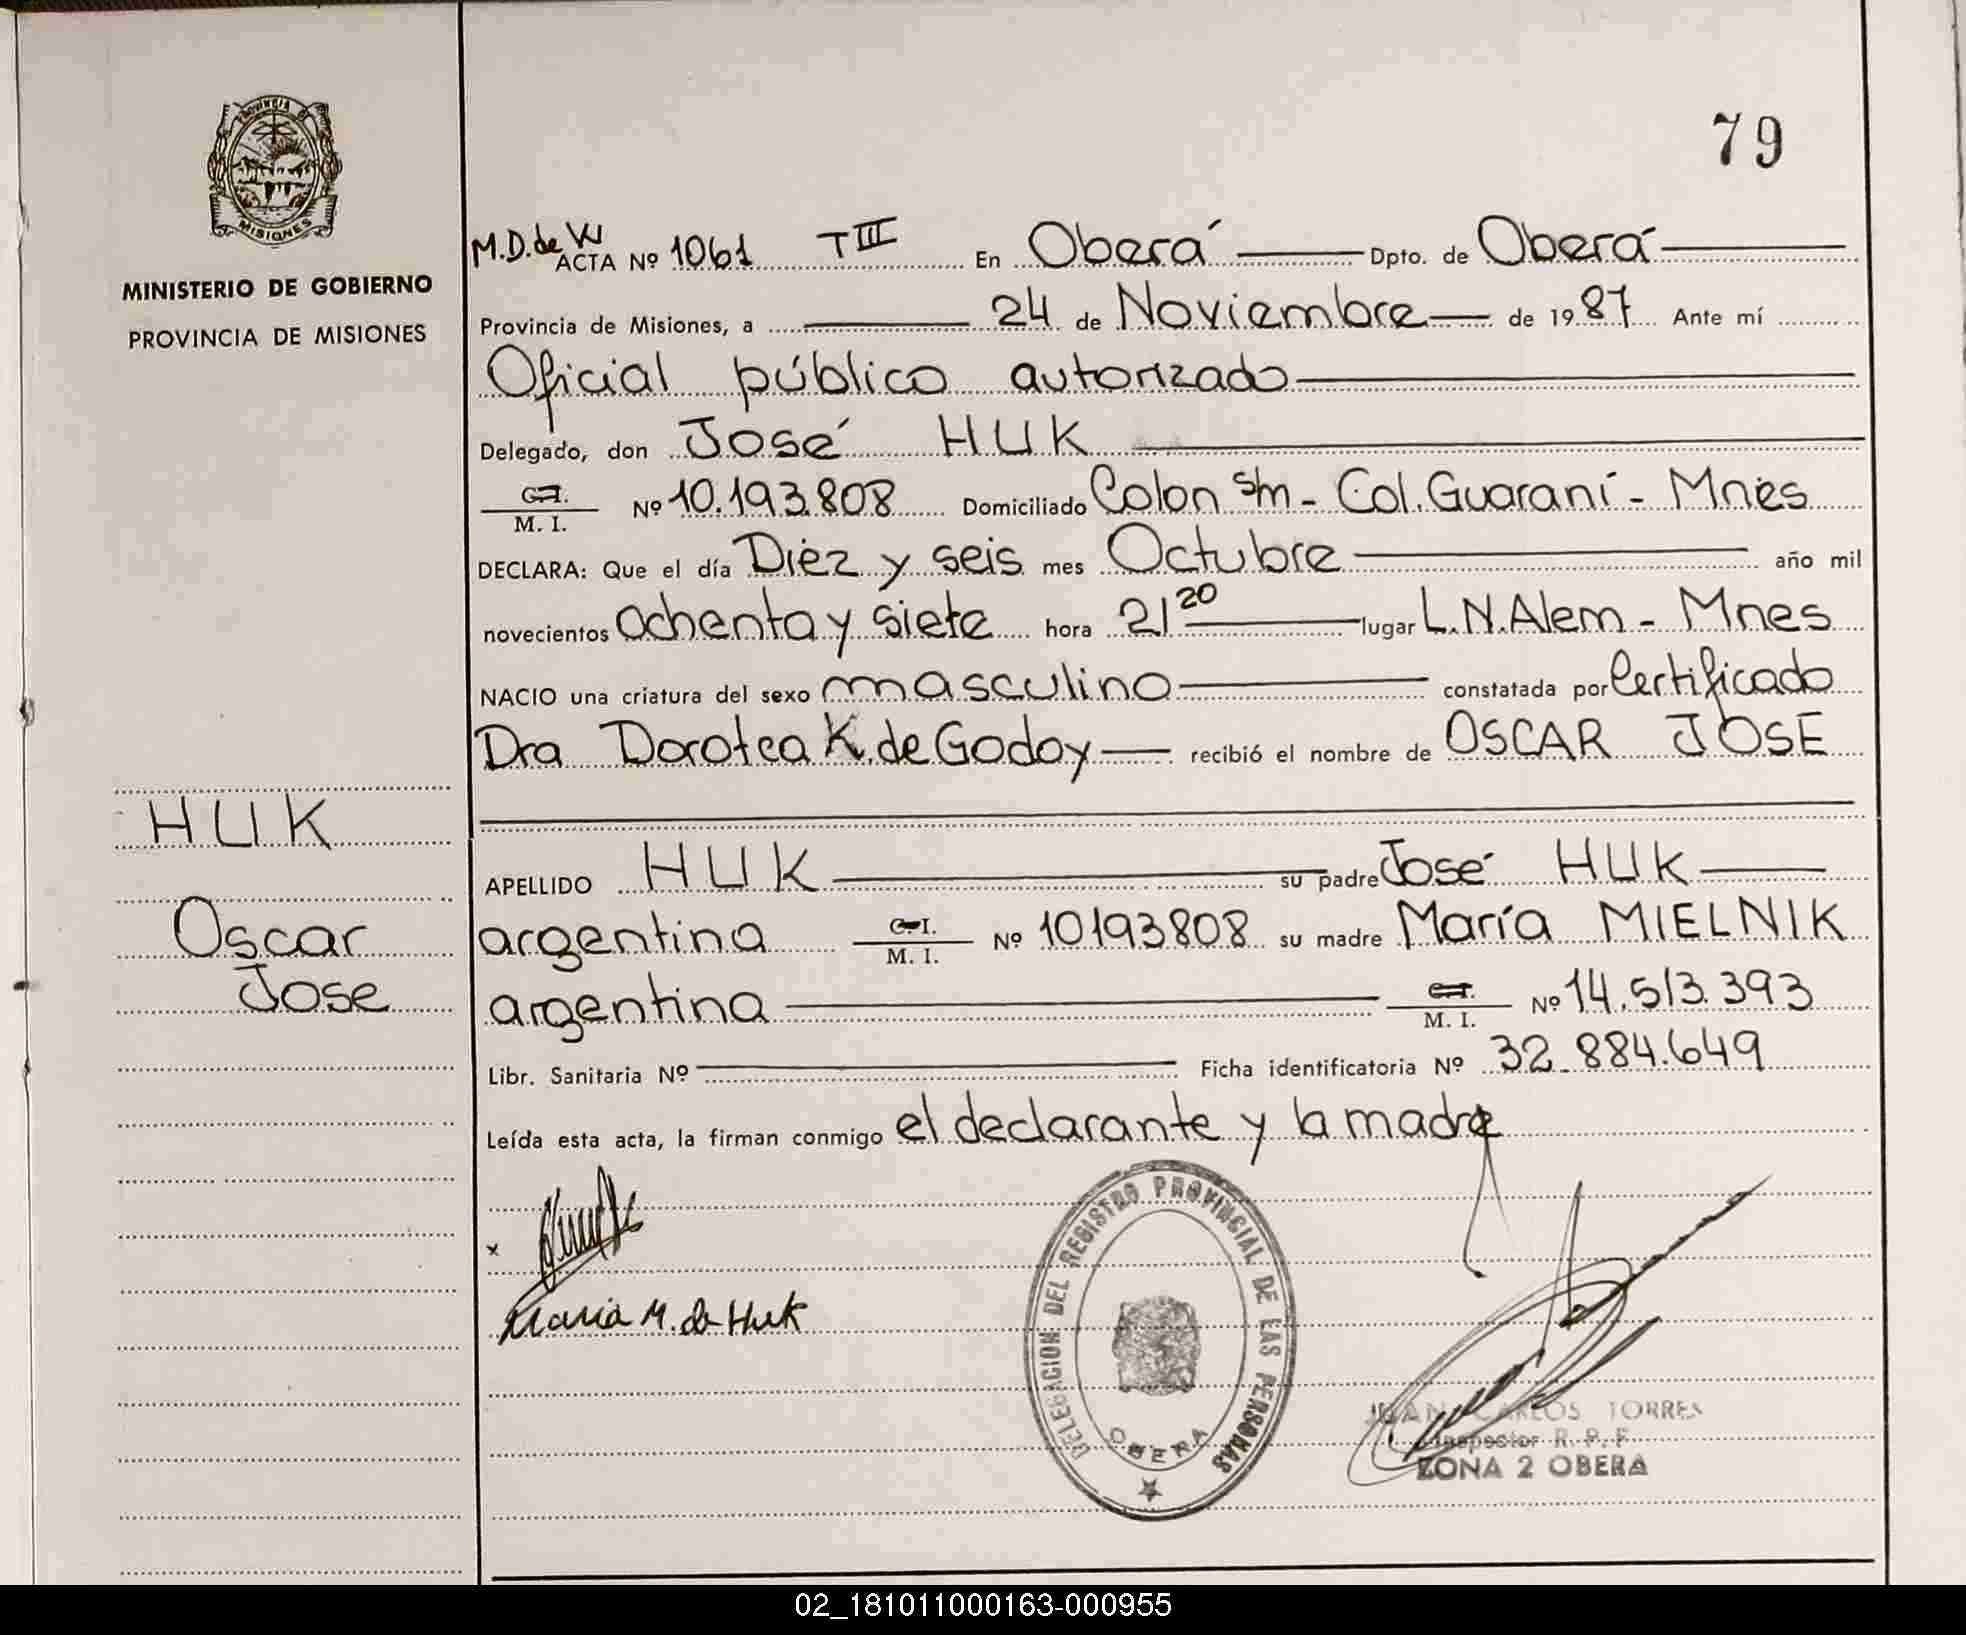 PROVINCIA DE
MISIONES
MINISTERIO DE GOBIERNO
PROVINCIA DE MISIONES
HUK
Oscar
Jose
79
M.D. de W
ACTA Nº 1061 T III En Oberá Dpto. de Oberá
Provincia de Misiones, a 24 de Noviembre de 1987 Ante mí
Oficial público autorizado
Delegado, don José HUK
C.I. / M. I. Nº 10.193.808 Domiciliado Colon s/m - Col. Guaraní - Mnes
DECLARA: Que el día Diez y seis mes Octubre año mil
novecientos ochenta y siete hora 21 20 lugar L.N. Alem - Mnes
NACIO una criatura del sexo masculino constatada por Certificado
Dra Dorotea K. de Godoy recibió el nombre de OSCAR JOSE
APELLIDO HUK su padre José HUK
argentina C.I. / M. I. Nº 10193808 su madre María MIELNIK
argentina C.I. / M. I. Nº 14.513.393
Libr. Sanitaria Nº Ficha identificatoria Nº 32.884.649
Leída esta acta, la firman conmigo el declarante y la madre
x
Maria M. de Huk
DELEGACION DEL REGISTRO PROVINCIAL DE LAS PERSONAS
OBERA
JUAN CARLOS TORRES
Inspector R. P. P.
ZONA 2 OBERA
02_181011000163-000955